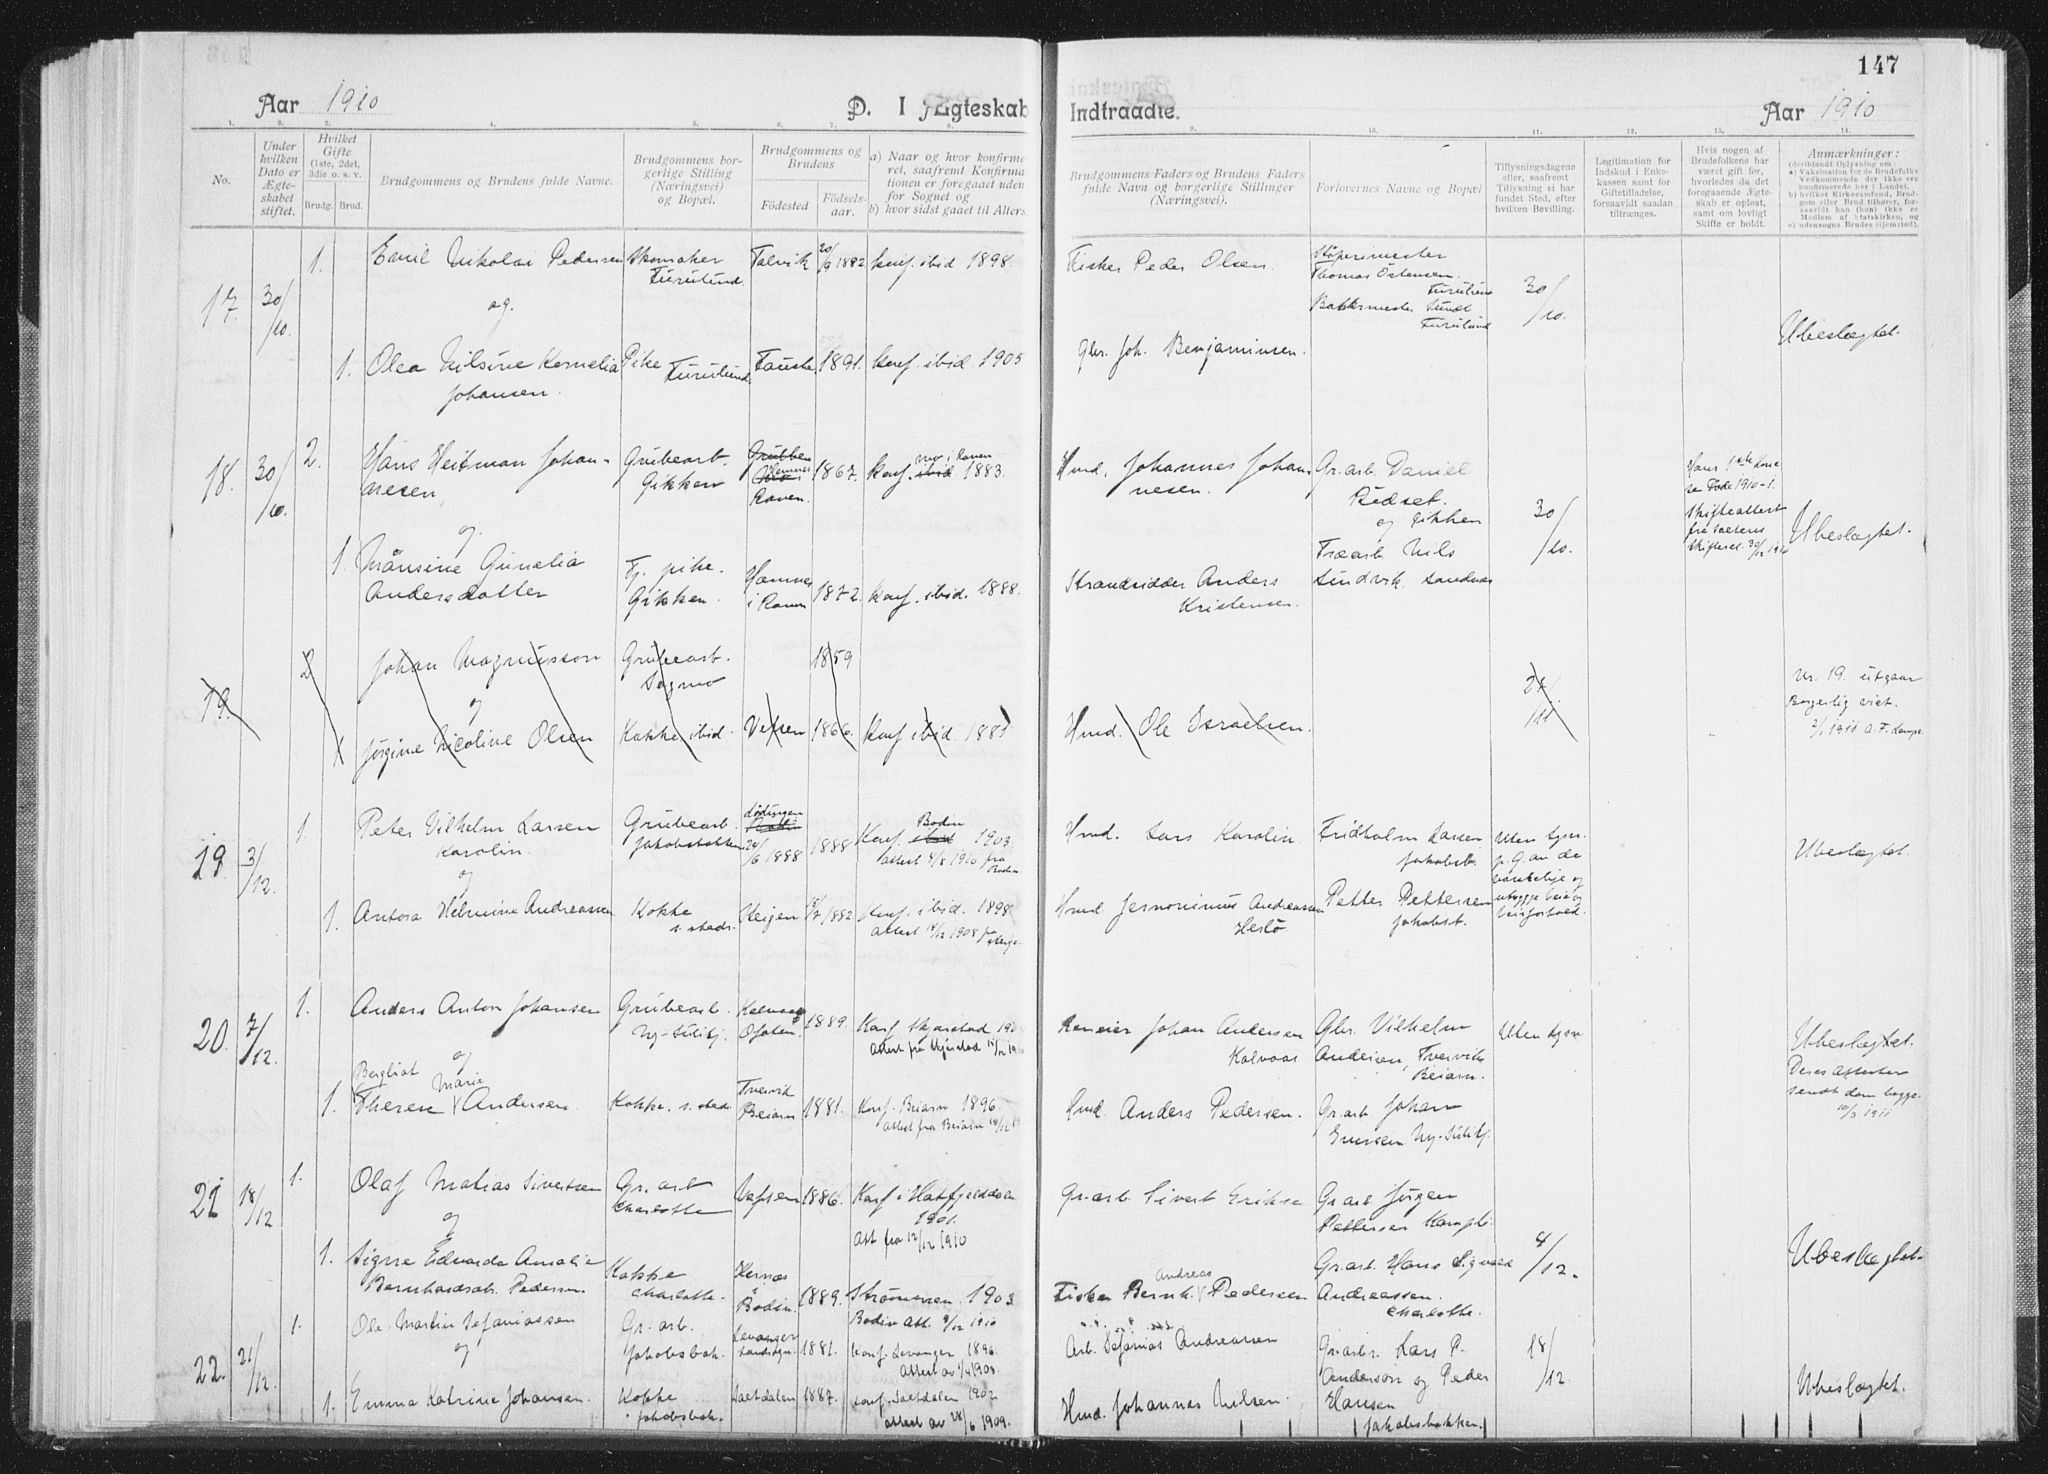 147
Aar 1910
D. I Ægteskab
Indtraadte.
Aar 1910
1. 2. 3. 4. 5. 6. 7. 8. 9. 10. 11. 12. 13. 14.
No.
Under hvilken Dato er Ægteskabet stiftet.
Hvilket Gifte (1ste, 2det, 3die o. s. v.
Brudg. Brud.
Brudgommens og Brudens fulde Navne.
Brudgommens borgerlige Stilling (Næringsvei) og Bopæl.
Brudgommens og Brudens
Fødested
Fødselsaar.
a) Naar og hvor konfirmeret, saafremt Konfirmationen er foregaaet udenfor Sognet og
b) hvor sidst gaaet til Alters
Brudgommens Faders og Brudens Faders fulde Navn og borgerlige Stillinger (Næringsvei).
Forlovernes Navne og Bopæl
Tillysningsdagene eller, saafremt Tillysning ei har fundet Sted, efter hvilken Bevilling.
Legitimation for Indskud i Enkekassen samt for Giftetilladelse, forsaavidt saadan tiltrænges.
Hvis nogen af Brudefolkene har været gift før, hvorledes da det foregaaende Ægteskab er opløst, samt om lovligt Skifte er holdt.
Anmærkninger:
(deriblandt Oplysning om:
a) Vakcination for de Brudefolks Vedkommende der ikke ere konfirmerede her i Landet.
b) hvilket Kirkesamfund, Brudgom eller Brud tilhører, forsaavidt han (hun) ikke er Medlem af Statskirken, og
c) udensogns Brudes Hjemsted).
17. 30/10. 1. Emil Nikolai Pedersen Skomaker Furulund. Talvik 20/9 1882 konf. ibid 1898. Fisker Peder Olsen. Støperimester Thomas Østensen. Furulund
Bakkmester Sundt Furulund 30/10.
og.
1. Olea Nilsine Kornelia Johansen. Pike Furulund Fauske 1891. konf. ibid. 1905 Gbr. Joh. Benjaminsen. Ubeslægtet.
18. 30/10. 2. Hans Heitman Johannesen, Grubearb. Gikken Hemnes Ranen. 1867. konf. ibid mo i Ranen 1883. Hmd. Johannes Johannesen. Gr. arb. Daniel Rødset. og Gikken 30/10.
Hans 1ste Kone døde 1910 Skifteattest fra Saltens Skifteret 30/12 1910 Ubeslægtet.
og.
1. Månsine Gunelia Andersdatter Tj. pike. Gikken. Hemnes i Ranen 1872. konf. ibid. 1888. Strandsidder Anders Kristensen. Træarb Nils Sundvik Sandnes
19. 2 Johan Magnusson Grubearb. Sagmo 1859 21/11 Nr. 19. utgaar
Borgerlig viet.
2/1 1911 A.F. Lampe
og
1 Jørgine Nicoline Olsen Kokke ibid. Vefsen 1866. Konf ibid. 1881 Hmd. Ole Israelsen.
19. 3/12. 1. Peter Vilhelm Larsen Karolin. Grubearb. Jakobsbakken Lødingen 24/6 1888 1888 Konf. ibid Bodin 1903. attest 4/8 1910 fra Bodin Hmd. Lars Karolin Fridholm Larsen Jakobsb. Uten lysn. p. g. av de Ubeslægtet.
og
1. Antora Helmine Andreassen Kokke s. steds. Steigen 1882 Konf. ibid. 1898 attest 14/12 1908 fra Steigen Hmd Jeronimus Andreassen Petter Pettersen Jakobsb.
20. 7/12. 1. Anders Anton Johansen Grubearb. Ny-Sulitj. Ofoten. 1889. Konf Skjerstad attest fra Skjerstad Johan Andersen Kalvaas Gbr. Vilhelm Andersen, Tvervik Beiarn. Uten lysn Ubeslægtet.
Deres attester sendt dem begge. 10/3 1911
og
1. Bergliot Therese Marie Andersen. Kokke. s. sted. Tvervik Beiarn 1881. Konf. Beiarn 1896. attest fra Beiarn Hmd. Anders Pedersen. Gr. arb Johan Ny-Sulitj.
21 18/12. 1. Olaf Matias Sivertsen Gr. arb Charlotte Vefsen 1886. Konf i Hatfjelddalen 1901. Att fra 12/12 1910 Gr. arb. Sivert Gr. arb Jørgen Pettersen
og
1. Signe Edvarda Amalie Bernhardsdtr. Pedersen. Kokke Charlotte. Hernæs Bodin. 1889. Strømmen. 1903. Bodin att. 9/12 1910 Fisker Bernh. Andreas Pedersen Gr. arb. Hans Andreassen. Charlotte. 4/12. Ubeslægtet.
22. 21/12. 1. Ole Martin Sefaniassen Gr. arb. Jakobsbak. Levanger Landsogn. 1881. Konf. Levanger 1896. Attest av Arb. Sefanias Andreassen Gr. arb. Lars P. Anderson og Peder Hansen Jakobsbakken. 18/12.
og
1. Emma Katrine Johansen. Kokke Jakobsbak. Saltdalen 1887. konf. Saltdalen 1902 attest av 28/6 1909. Hmd. Johannes Nilsen. Ubeslægtet.